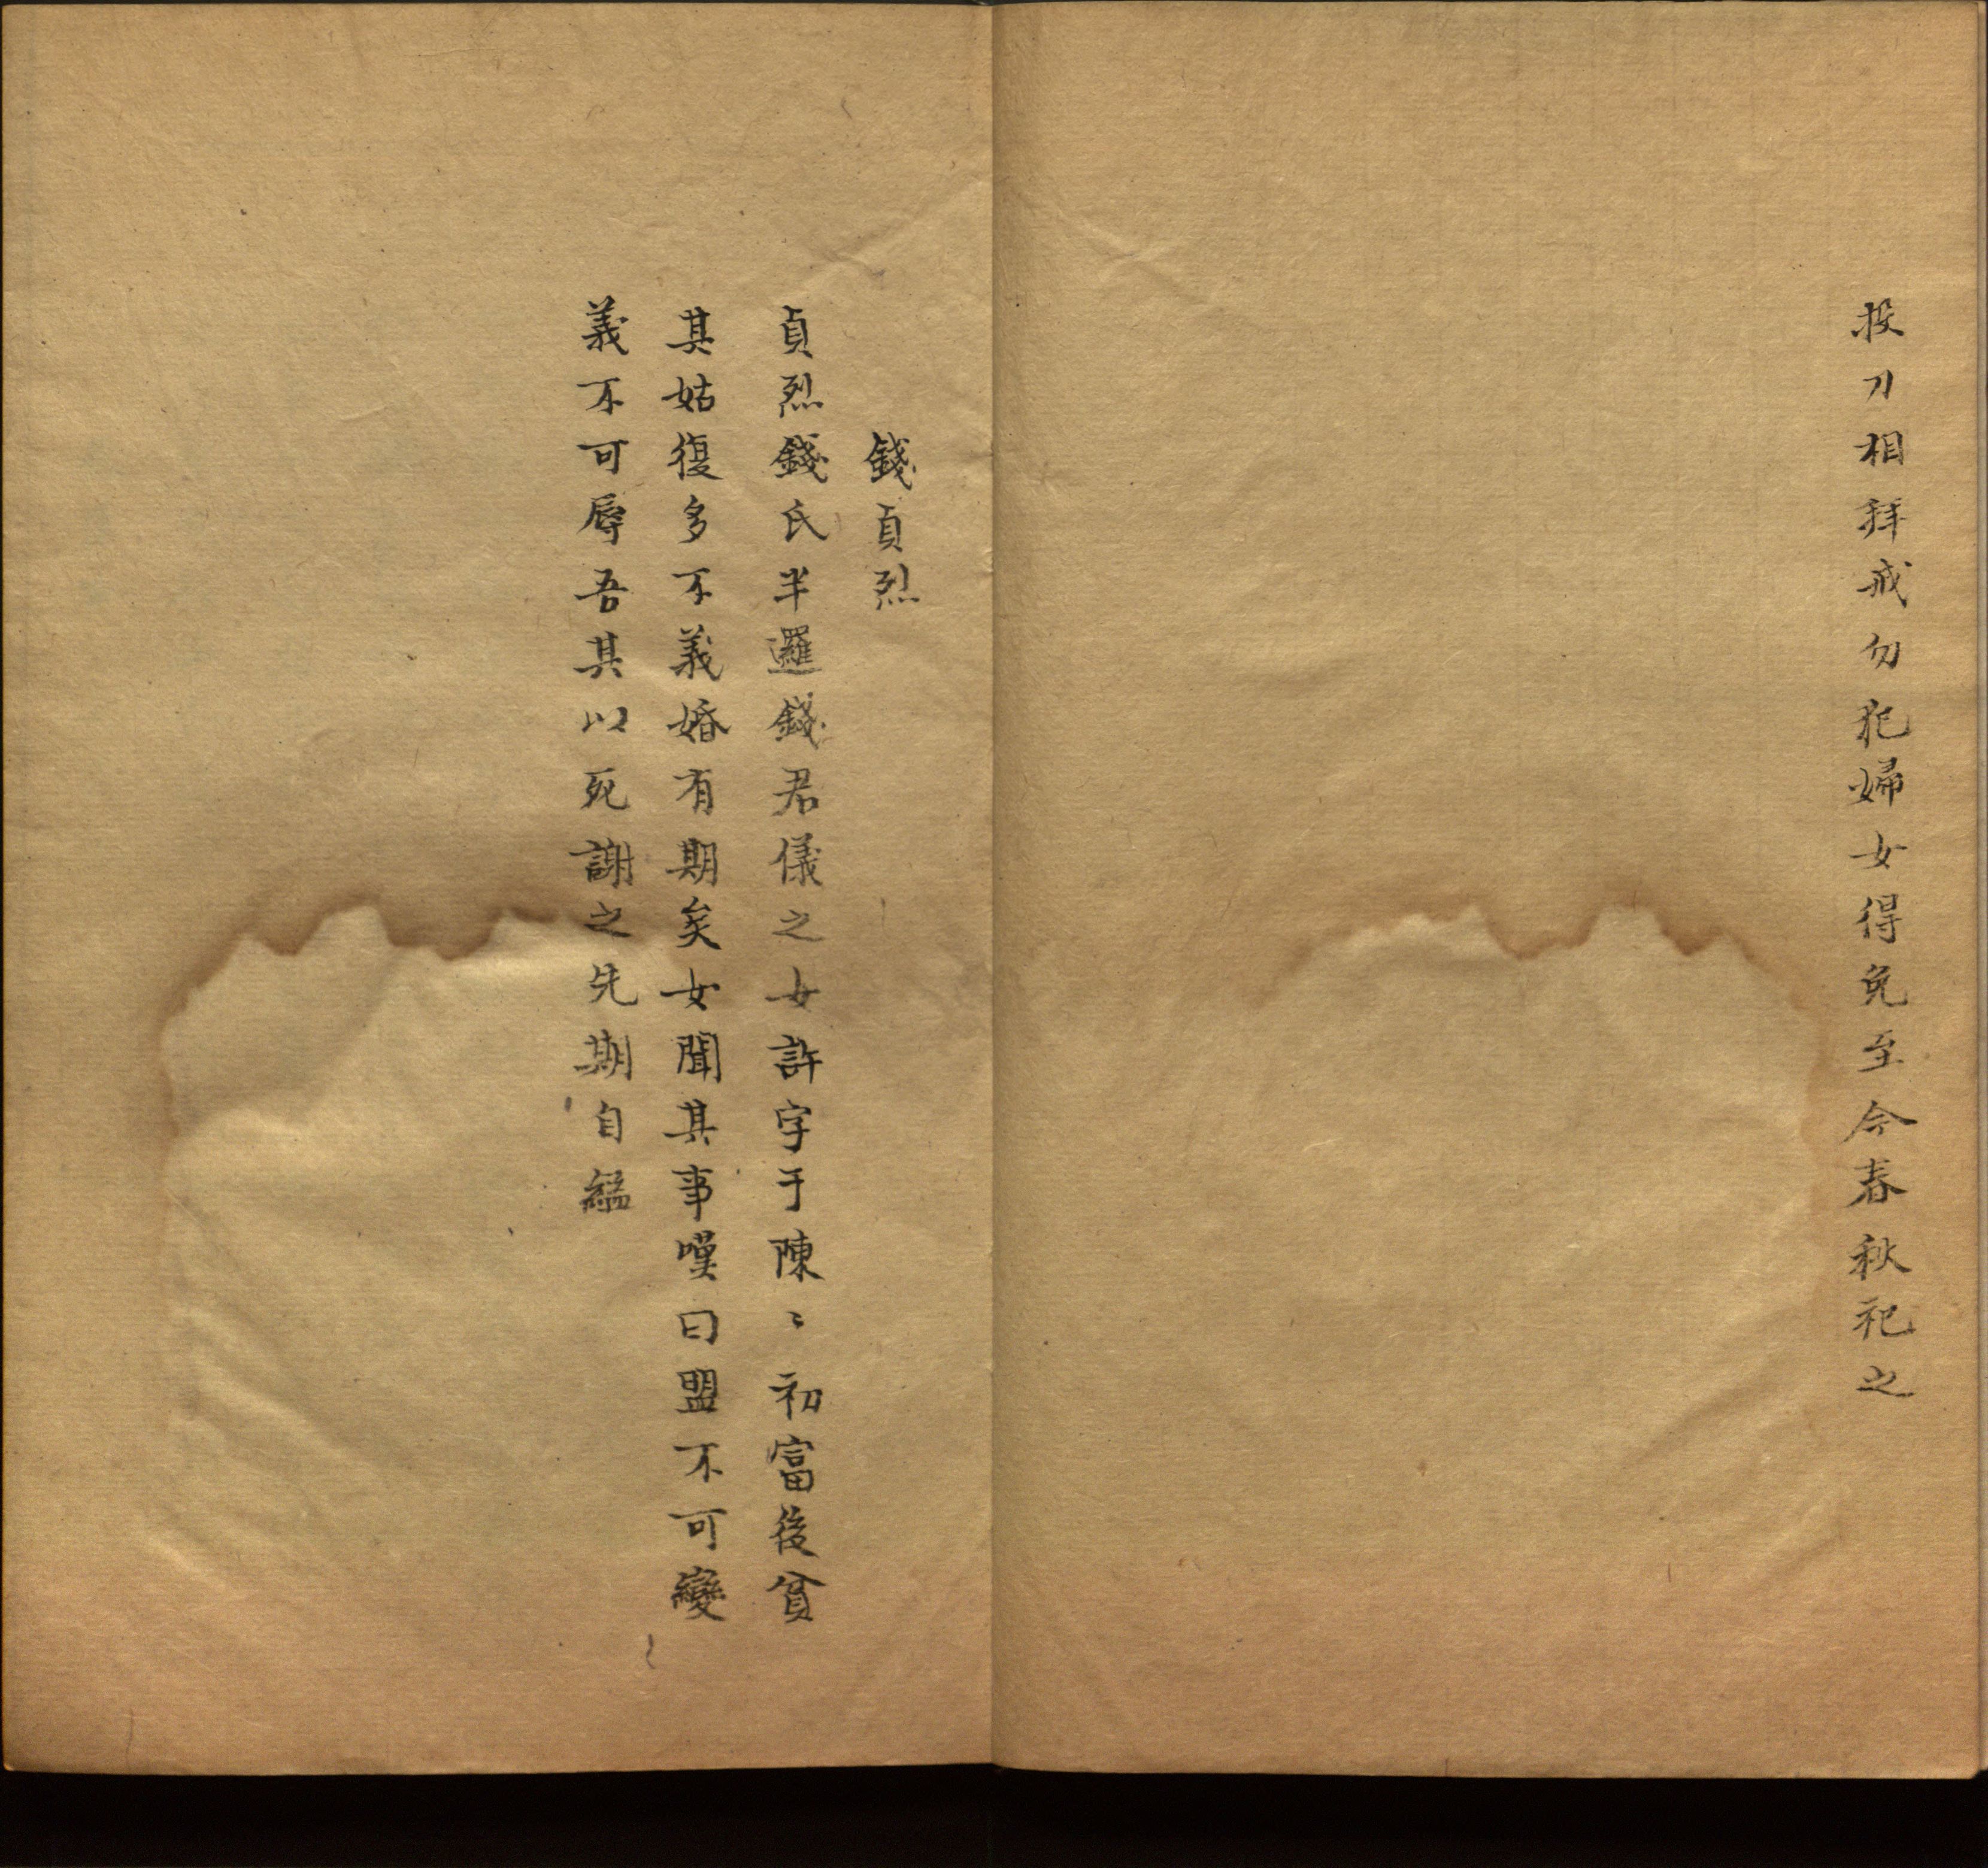 投刀相拜戒勿犯婦女得免至今春秋祀之
錢貞烈
貞烈錢氏半邏錢君儀之女許字于陳〻初富後貧
其姑復多不義婚有期矣女聞其事嘆曰盟不可變
義不可辱吾其以死謝之先期自縊